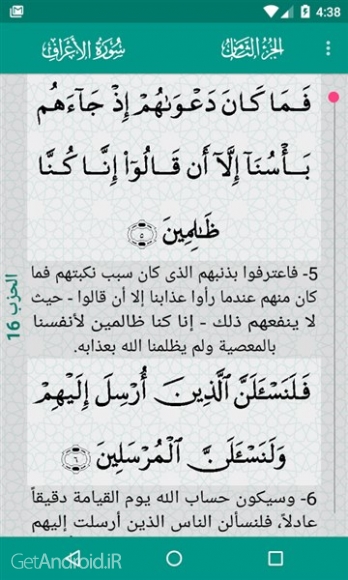 4:38
الجزء الثامن
سورة الأعراف
فَمَا كَانَ دَعْوَىٰهُمْ إِذْ جَآءَهُم
بَأْسُنَآ إِلَّآ أَن قَالُوٓا۟ إِنَّا كُنَّا
ظَٰلِمِينَ ٥
5- فاعترفوا بذنبهم الذى كان سبب نكبتهم فما
كان منهم عندما رأوا عذابنا إلا أن قالوا - حيث
لا ينفعهم ذلك - إنا كنا ظالمين لأنفسنا
بالمعصية ولم يظلمنا الله بعذابه.
الحزب 16
فَلَنَسْـَٔلَنَّ ٱلَّذِينَ أُرْسِلَ إِلَيْهِمْ
وَلَنَسْـَٔلَنَّ ٱلْمُرْسَلِينَ ٦
6- وسيكون حساب الله يوم القيامة دقيقاً
عادلاً، فلنسألن الناس الذين أرسلت إليهم
GetAndroid.iR